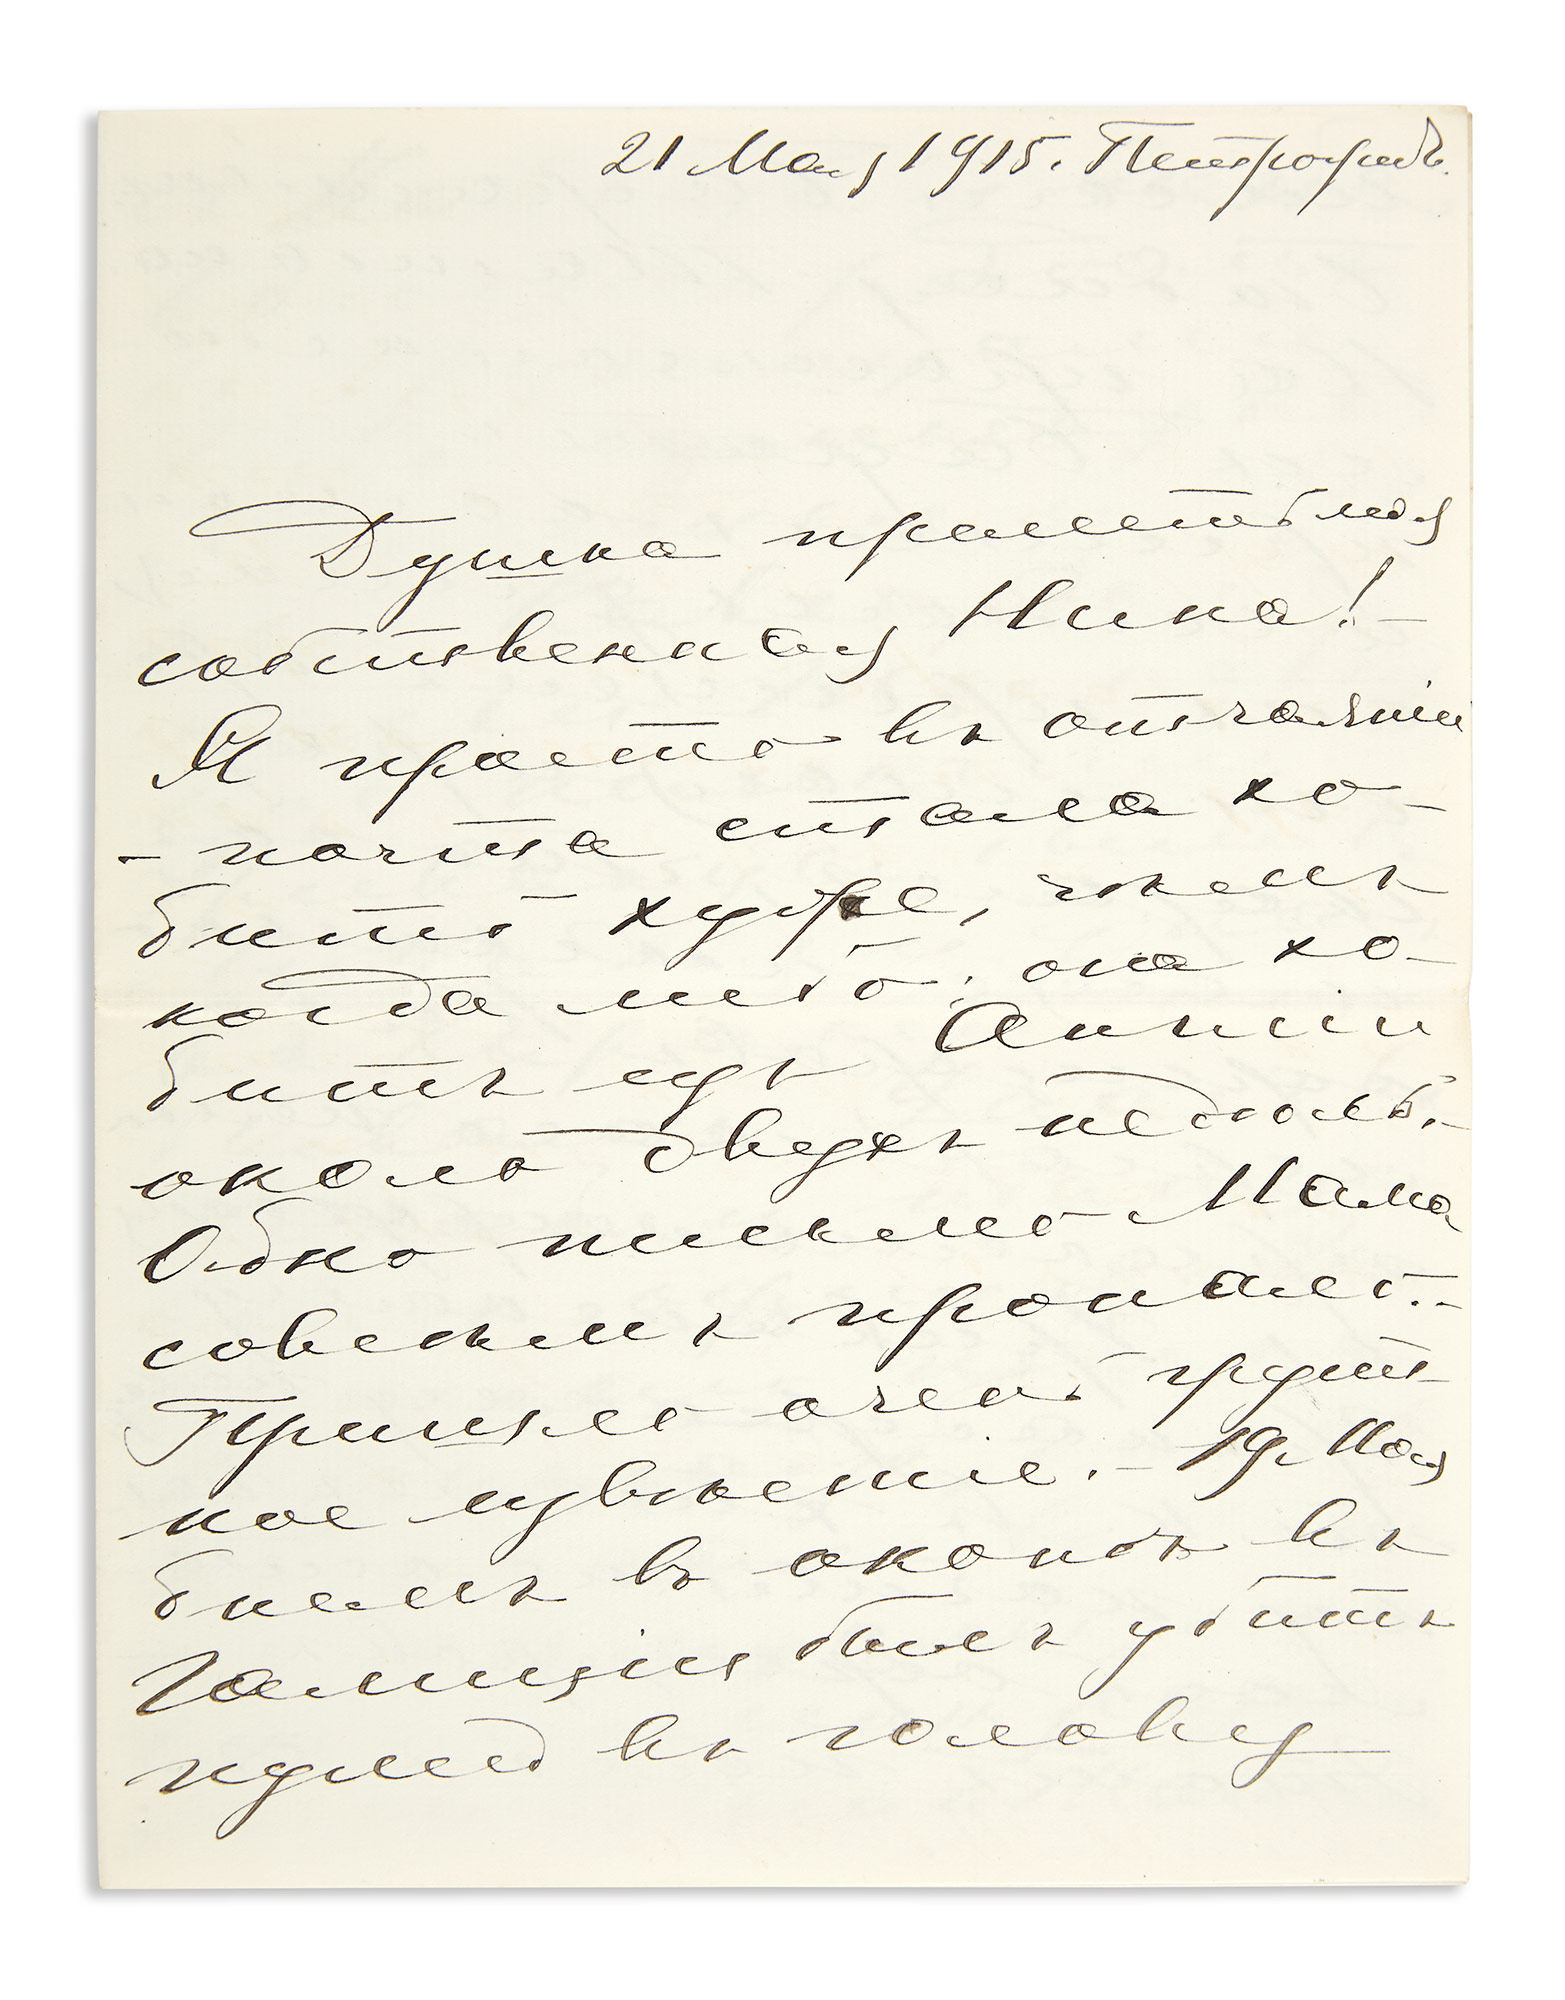 21 Мая 1915. Петроградъ.
Душка прелестная
собственная Нина! –
Я просто въ отчаяніи
– почта стала хо-
дить хуже, чѣмъ
когда либо; она хо-
дитъ изъ Англіи
около двухъ недѣль. –
Одно письмо Мама
совсѣмъ пропало. –
Пришло очень груст-
ное извѣстіе. – 19 Мая
былъ въ окопѣ въ
Галиціи былъ убитъ
пулей въ голову